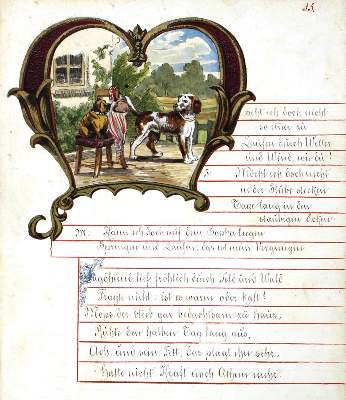 15.
öcht ich doch nicht
so immer zu
Laufen durch Wetter
und Wind, wie du!
J: Möcht ich doch nicht
in der Stube stecken
Tage lang in den
staubigen Ecken
M: Kann ich doch auf dem Sopha liegen
Springen und Laufen, das ist mein Vergnügen
Jagdhund lief fröhlich durch Feld und Wald
Fragte nicht: ist es warm oder kalt!
Mops, der blieb gar bedachtsam zu Haus,
Ruhte den halben Tag lang aus,
Ach, und sein Fett, das plagt ihn sehr.
Hatte nicht Kraft noch Athem mehr.